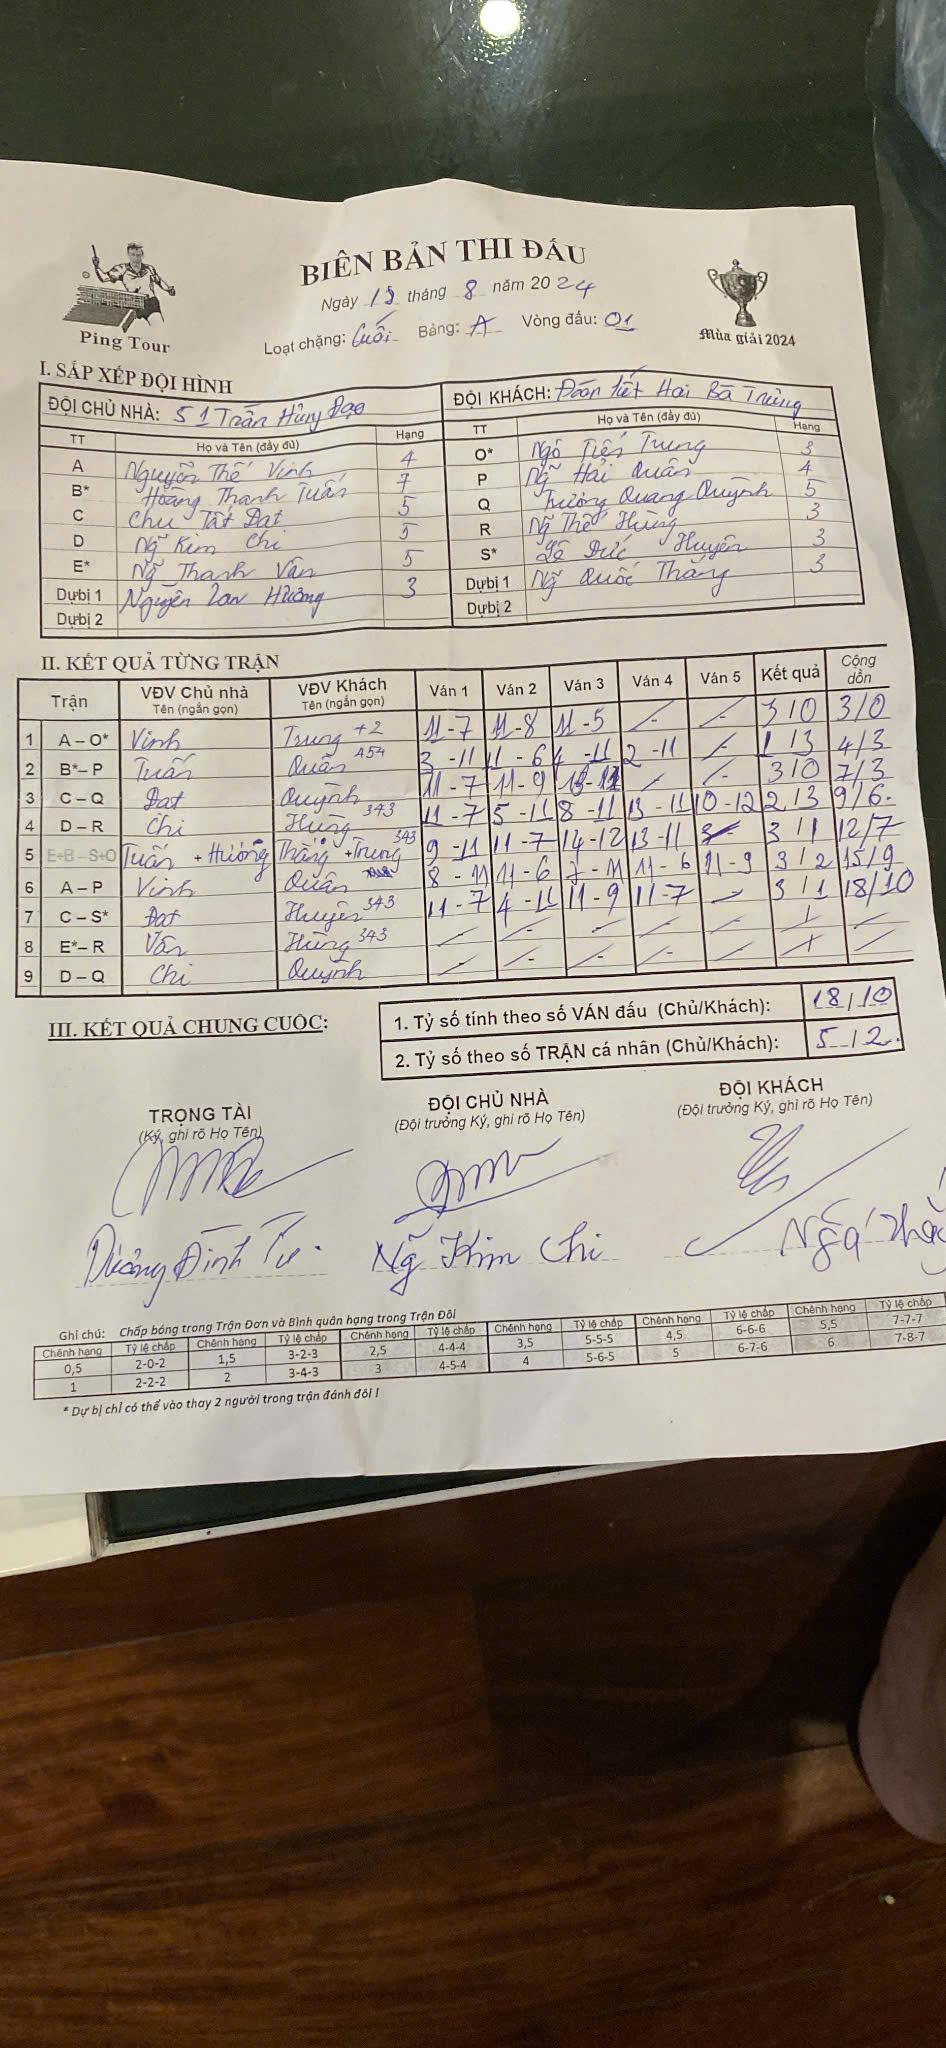 BIÊN BẢN THI ĐẤU
Ngày 15 tháng 8 năm 2024
Loạt chặng: Cuối Bảng: A Vòng đấu: 01
Ping Tour
Mùa giải 2024
I. SẮP XẾP ĐỘI HÌNH
ĐỘI CHỦ NHÀ: 51 Trần Hưng Đạo
ĐỘI KHÁCH: Đoàn kết Hai Bà Trưng
TT Họ và Tên (đầy đủ) Hạng TT Họ và Tên (đầy đủ) Hạng
A Nguyễn Thế Vinh 4 O* Ngô Tiến Trung 3
B* Hoàng Thanh Tuấn 7 P Ng̃ Hải Quân 4
C Chu Tất Đạt 5 Q Trương Quang Quỳnh 5
D Ng̃ Kim Chi 5 R Ng̃ Thế Hùng 3
E* Ng̃ Thanh Vân 5 S* Lê Đức Huyên 3
Dự bị 1 Nguyễn Lan Hương 3 Dự bị 1 Ng̃ Quốc Thắng 3
Dự bị 2 Dự bị 2
II. KẾT QUẢ TỪNG TRẬN
Trận VĐV Chủ nhà Tên (ngắn gọn) VĐV Khách Tên (ngắn gọn) Ván 1 Ván 2 Ván 3 Ván 4 Ván 5 Kết quả Cộng dồn
1 A – O* Vinh Trung +2 11 - 7 11 - 8 11 - 5 - - 3/0 3/0
2 B* – P Tuấn Quân 454 3 - 11 11 - 6 4 - 11 2 - 11 - 1/3 4/3
3 C – Q Đạt Quỳnh 11 - 7 11 - 9 - - 3/0 7/3
4 D – R Chi Hùng 343 11 - 7 5 - 11 8 - 11 13 - 11 10 - 12 2/3 9/6.
5 E+B – S+O Tuấn + Hương Thắng + Trung 343 9 - 11 11 - 7 14 - 12 13 - 11 3/1 12/7
6 A – P Vinh Quân 8 - 11 11 - 6 7 - 11 11 - 6 11 - 9 3/2 15/9
7 C – S* Đạt Huyên 343 11 - 7 4 - 11 11 - 9 11 - 7 - 3/1 18/10
8 E* – R Vân Hùng 343 - - - - - / /
9 D – Q Chi Quỳnh - - - - - / /
III. KẾT QUẢ CHUNG CUÔC:
1. Tỷ số tính theo số VÁN đấu (Chủ/Khách): 18/10
2. Tỷ số theo số TRẬN cá nhân (Chủ/Khách): 5/2.
TRỌNG TÀI ĐỘI CHỦ NHÀ ĐỘI KHÁCH
(Ký, ghi rõ Họ Tên) (Đội trưởng Ký, ghi rõ Họ Tên) (Đội trưởng Ký, ghi rõ Họ Tên)
Dương Đình Tư. Ng̃ Kim Chi
Ghi chú: Chấp bóng trong Trận Đơn và Bình quân hạng trong Trận Đôi
Chênh hạng Tỷ lệ chấp Chênh hạng Tỷ lệ chấp Chênh hạng Tỷ lệ chấp Chênh hạng Tỷ lệ chấp Chênh hạng Tỷ lệ chấp Chênh hạng Tỷ lệ chấp
0,5 2-0-2 1,5 3-2-3 2,5 4-4-4 3,5 5-5-5 4,5 6-6-6 5,5 7-7-7
1 2-2-2 2 3-4-3 3 4-5-4 4 5-6-5 5 6-7-6 6 7-8-7
* Dự bị chỉ có thể vào thay 2 người trong trận đánh đôi !